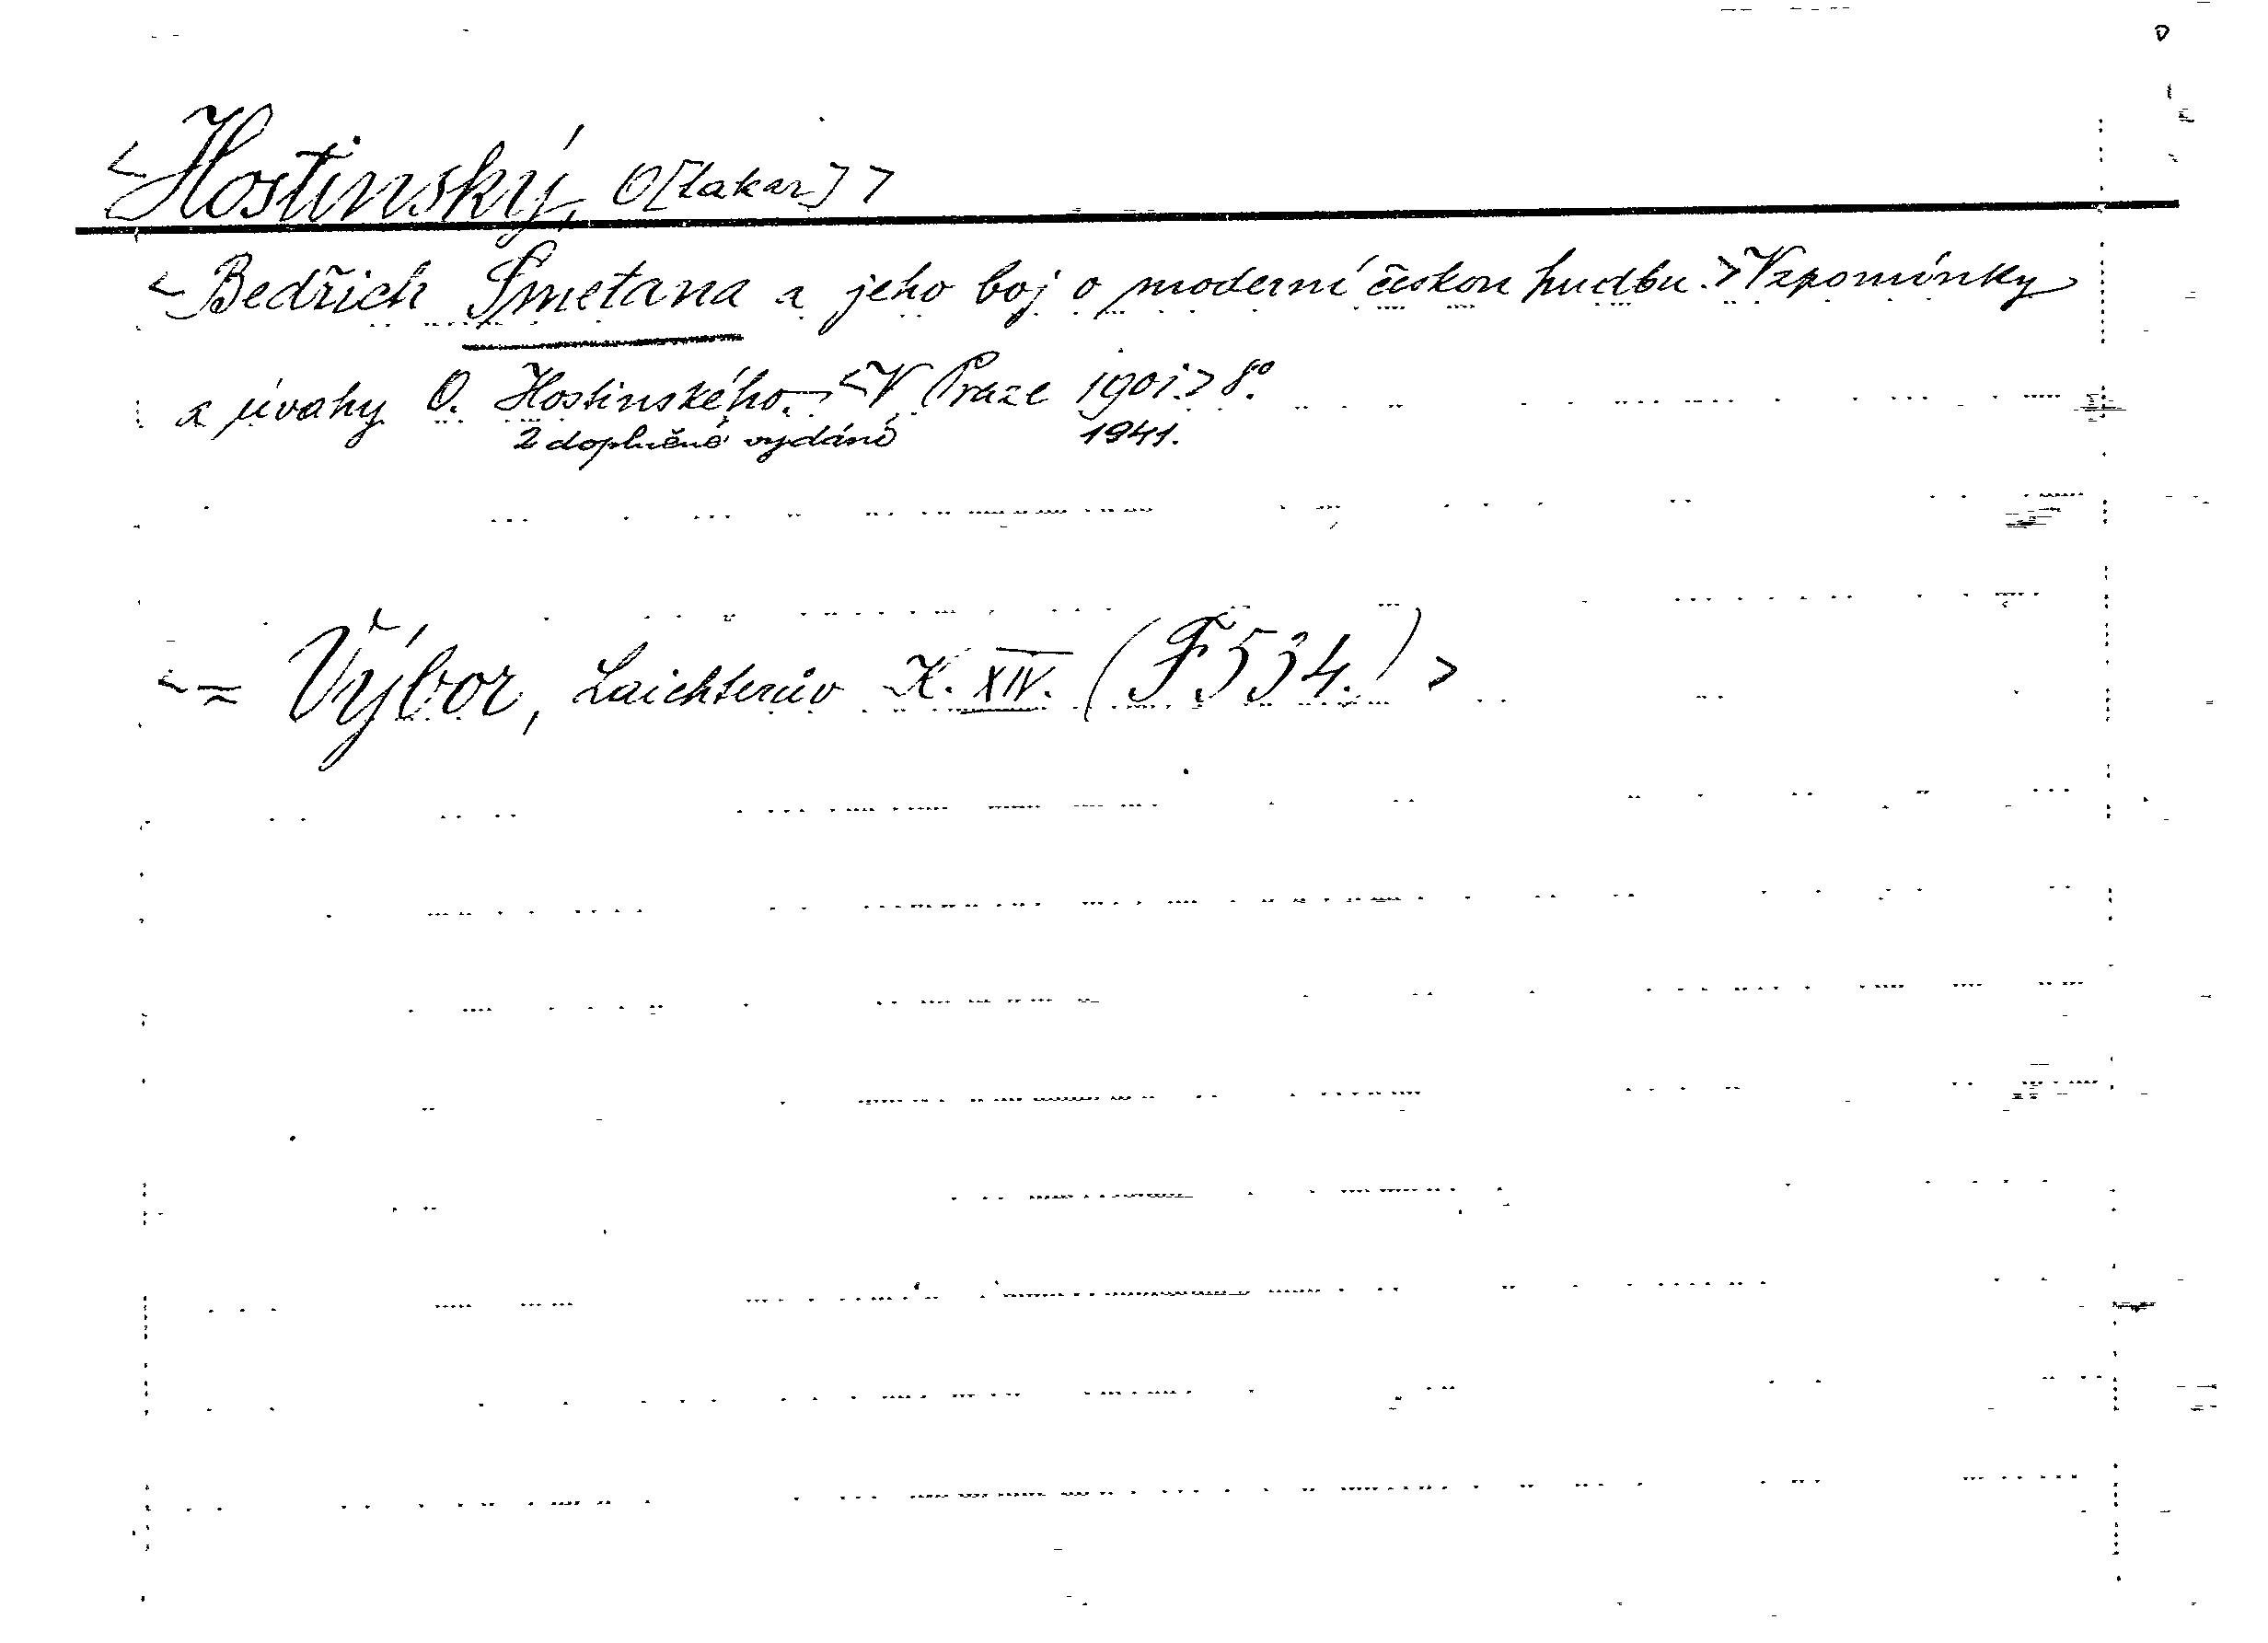 <Hostinský, O[takar]>
<Bedřich Smetana a jeho boj o moderní českou hudbu.> Vzpomínky
a úvahy O. Hostinského.– <V Praze 1901.> 8°.
2 doplněné vydání 1941.
<= Výbor, Laichterův K. XIV. (F534.)>